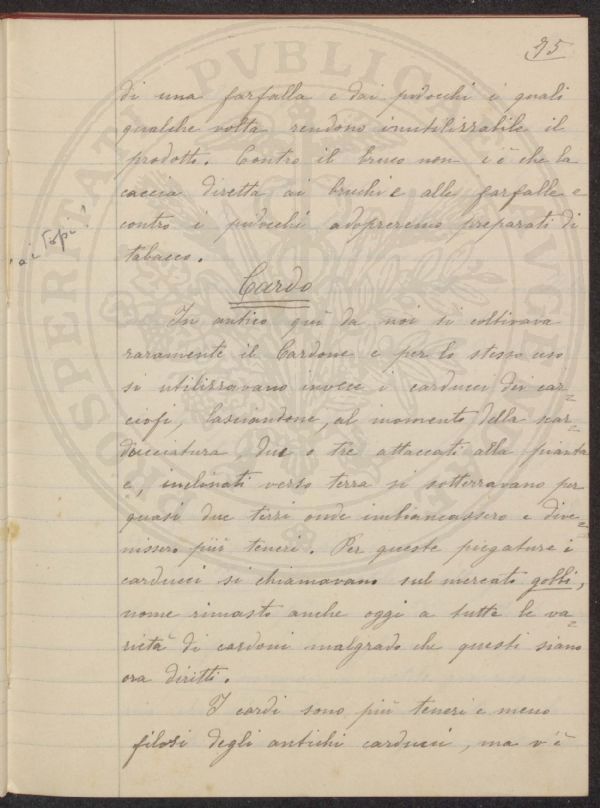 75
di una farfalla e dai pidocchi i quali
qualche volta rendono inutilizzabile il
prodotto. Contro il bruco non c'è che la
caccia diretta ai bruchi e alle farfalle e
contro i pidocchi adopreremo preparati di
tabacco.
ai Topi!
Cardo
In antico quì da noi si coltivava
raramente il Cardone e per lo stesso uso
si utilizzavano invece i carducci dei car=
ciofi, lasciandone, al momento della scar=
ducciatura, due o tre attaccati alla pianta
e, inclinati verso terra si sotterravano per
quasi due terzi onde imbiancassero e dive=
nissero più teneri. Per queste piegature i
carducci si chiamavano sul mercato gobbi,
nome rimasto anche oggi a tutte le va=
rietà di cardoni malgrado che questi siano
ora diritti.
I cardi sono più teneri e meno
filosi degli antichi carducci, ma v'è